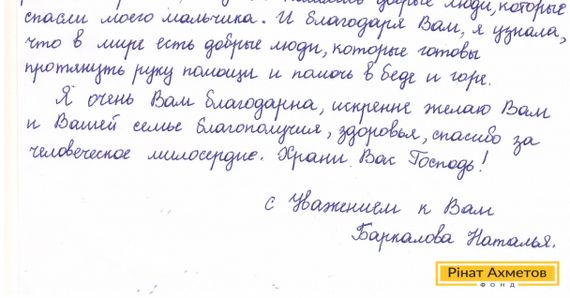 добрые люди, которые
спасли моего мальчика. И благодаря Вам, я узнала,
что в мире есть добрые люди, которые готовы
протянуть руку помощи и помочь в беде и горе.
Я очень Вам благодарна, искренне желаю Вам
и Вашей семье благополучия, здоровья, спасибо за
человеческое милосердие. Храни Вас Господь!
с Уважением к Вам
Баркалова Наталья.
Рінат Ахметов
ФОНД